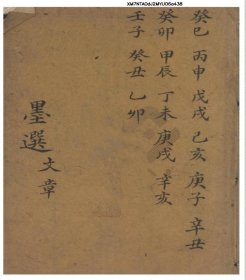 XM7NTAD6J2MYU05o438
癸巳 丙申 戊戌 己亥 庚子 辛丑
癸卯 甲辰 丁未 庚戌 辛亥
壬子 癸丑 乙卯
墨選文章